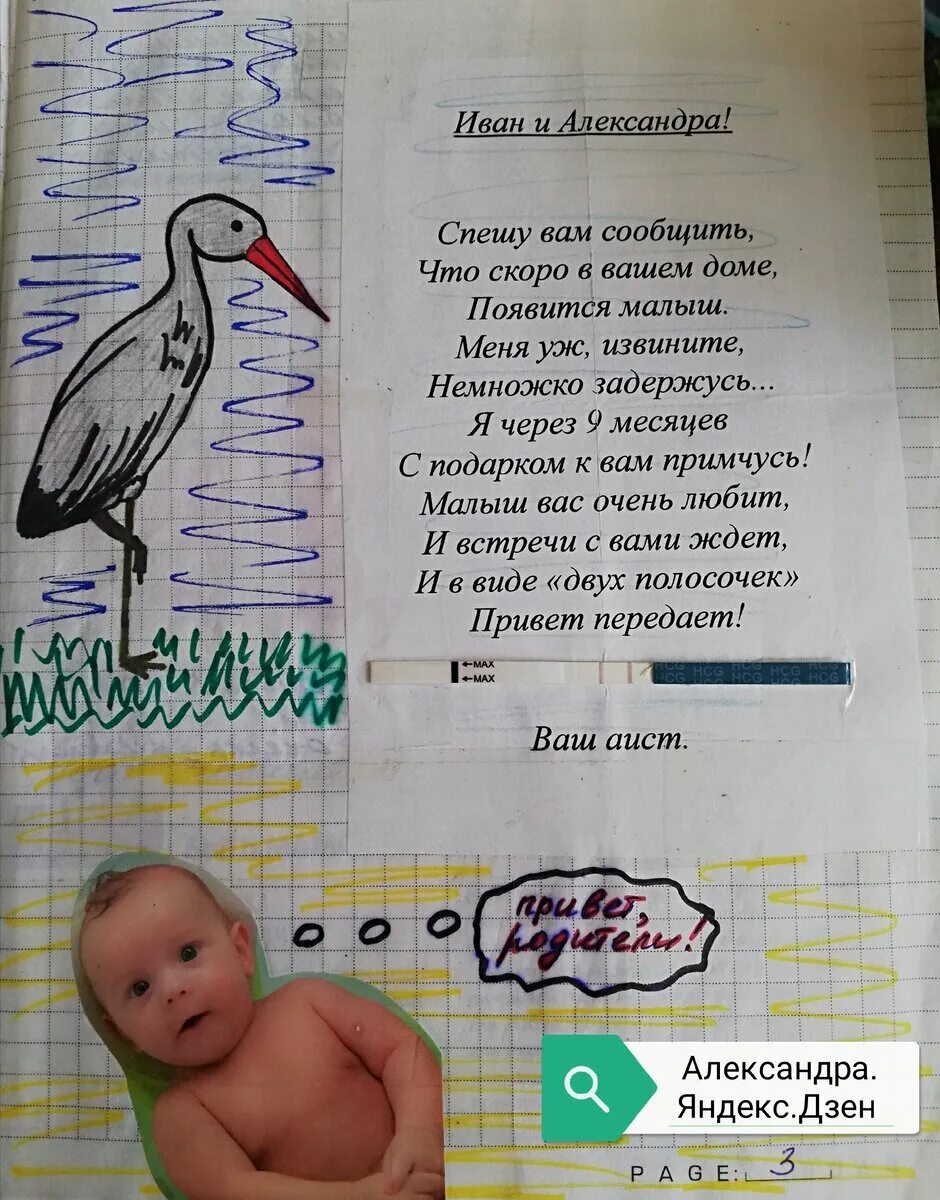 Иван и Александра!
Спешу вам сообщить,
Что скоро в вашем доме,
Появится малыш.
Меня уж, извините,
Немножко задержусь...
Я через 9 месяцев
С подарком к вам примчусь!
Малыш вас очень любит,
И встречи с вами ждет,
И в виде «двух полосочек»
Привет передает!
←MAX
←MAX
HCG HCG HCG HCG HCG
HCG HCG HCG HCG HCG
Ваш аист.
привет,
родители!
Александра.
Яндекс.Дзен
PAGE: 3